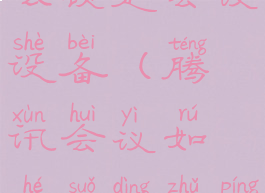 shè bèi téng
设备（腾
xùn huì yì rú
讯会议如
hé suǒ dìng zhǔ píng